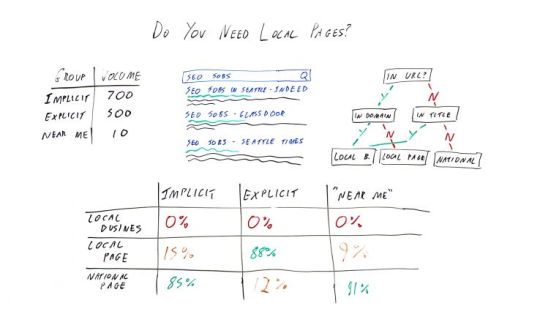 DO YOU NEED LOCAL PAGES?
GROUP VOLUME
IMPLICIT 700
EXPLICIT 500
NEAR ME 10
SEO JOBS Q
SEO JOBS IN SEATTLE - INDEED
SEO JOBS - GLASSDOOR
SEO JOBS - SEATTLE TIMES
IN URL?
Y N
IN DOMAIN IN TITLE
Y N Y N
LOCAL B. LOCAL PAGE NATIONAL
IMPLICIT EXPLICIT "NEAR ME"
LOCAL BUSINES 0% 0% 0%
LOCAL PAGE 15% 88% 9%
NATIONAL PAGE 85% 12% 91%